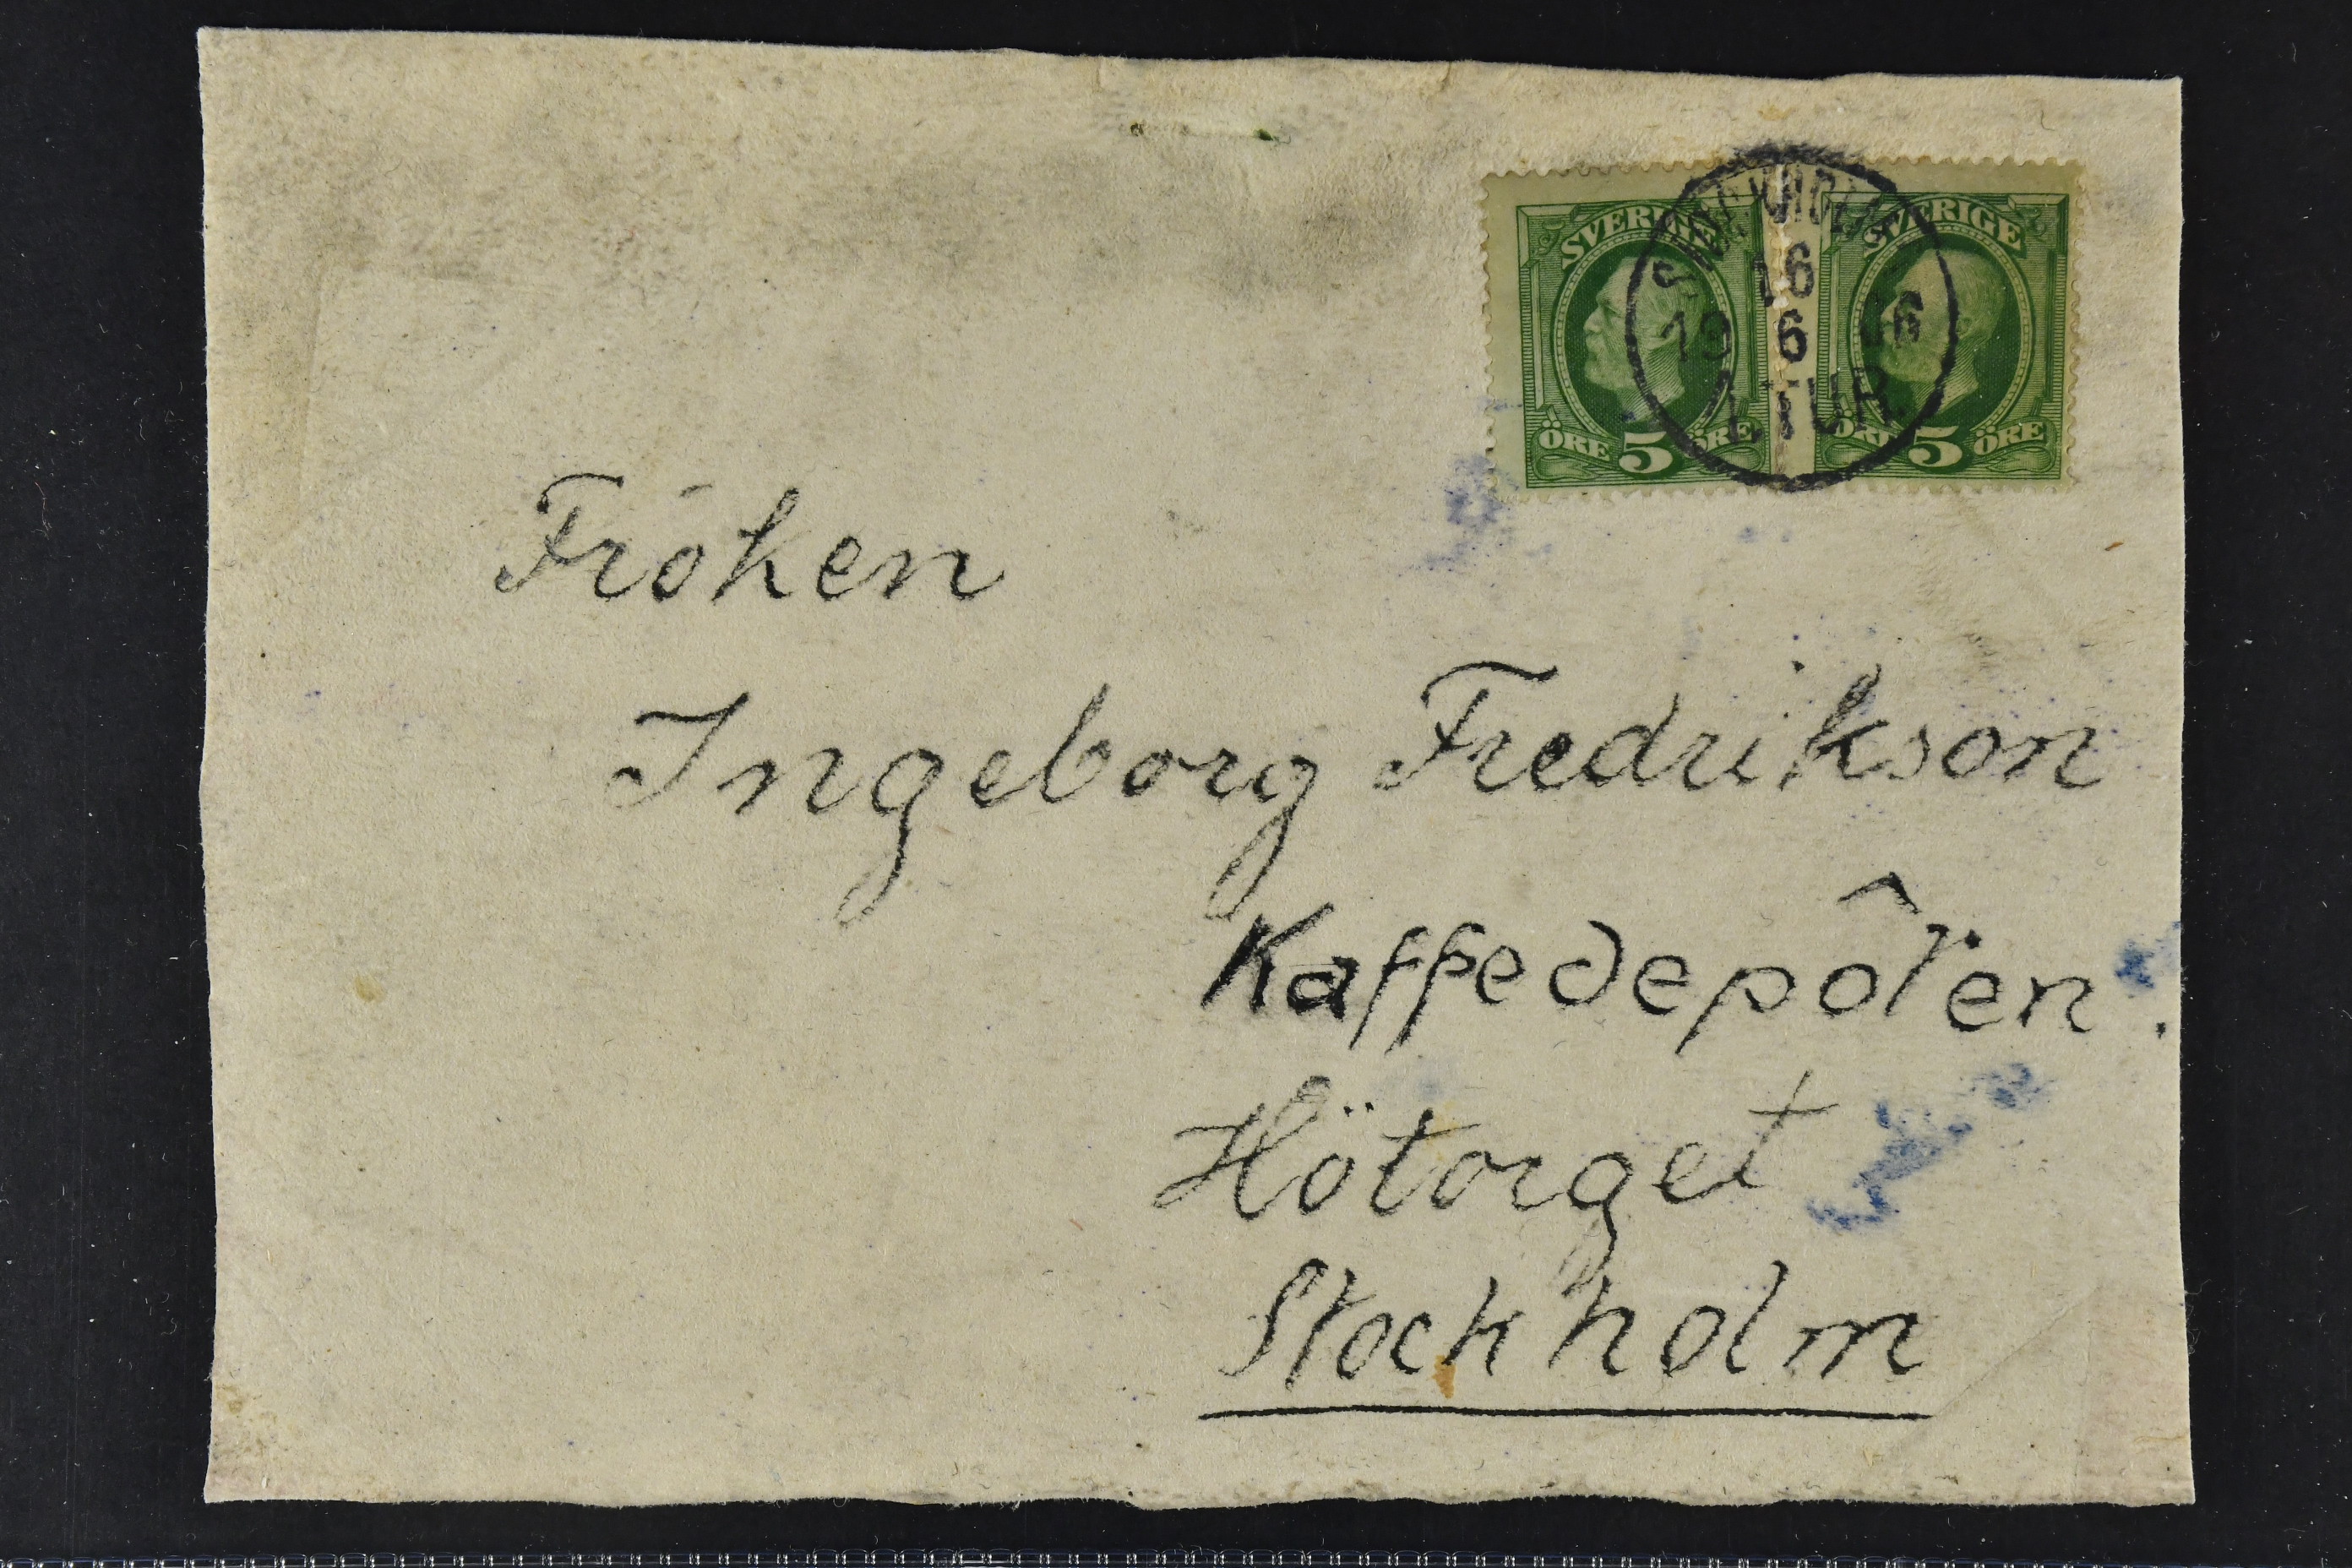 SVERIGE SVERIGE
16
19 6 06
LTUR
ÖRE 5 ÖRE ÖRE 5 ÖRE
Fröken
Ingeborg Fredrikson
Kaffedepôten.
Hötorget
Stockholm